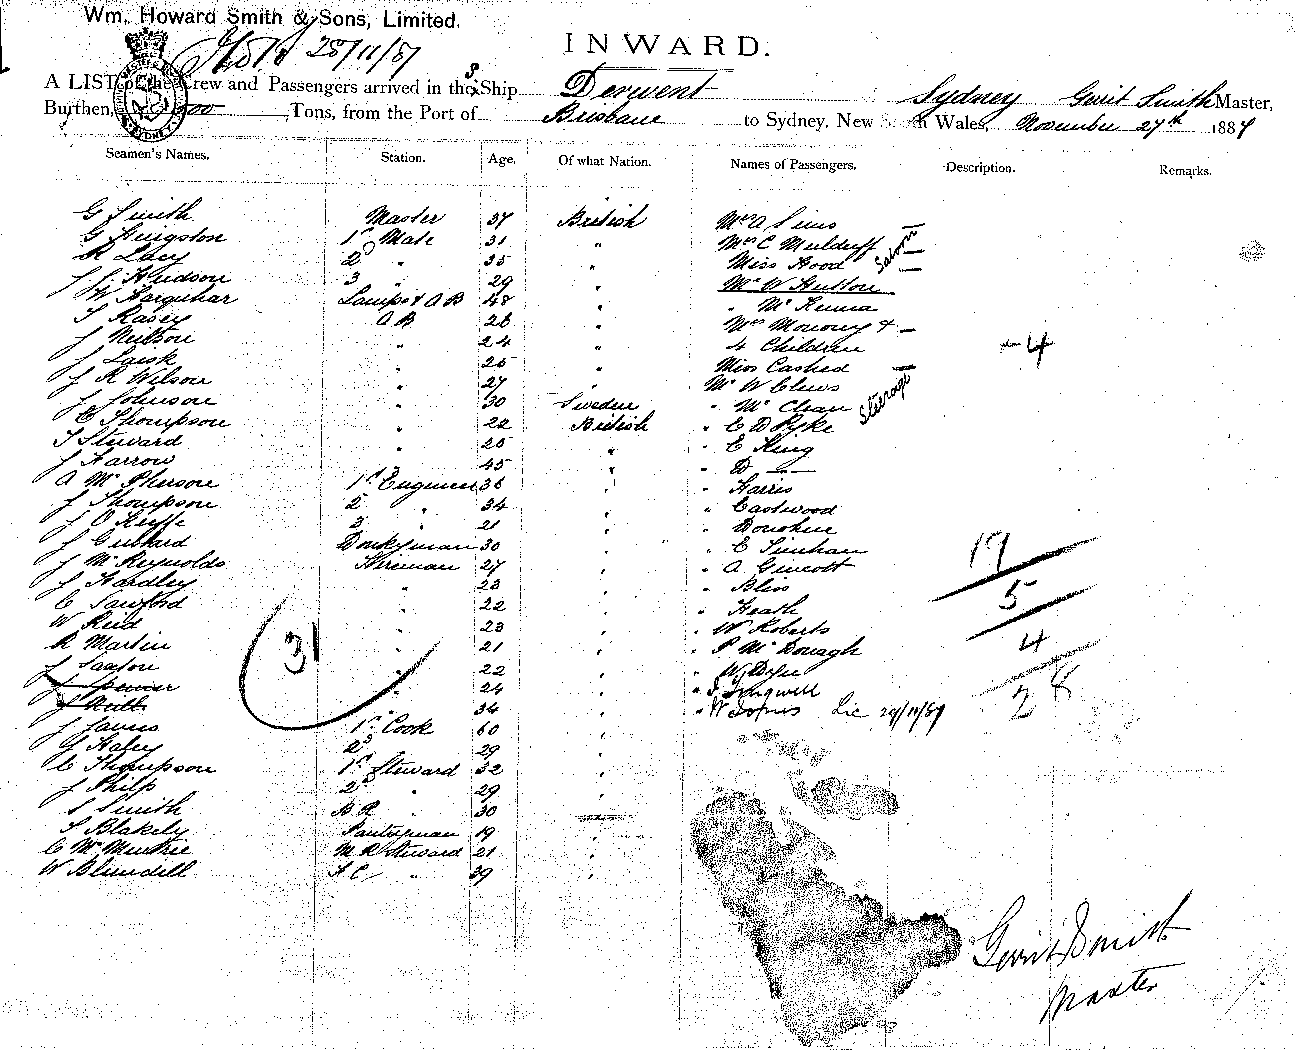 Wm. Howard Smith & Sons, Limited.
28/11/87
INWARD.
A LIST of the Crew and Passengers arrived in the S Ship Derwent Sydney Gerrit Smith Master,
Burthen, Tons, from the Port of Brisbane to Sydney, New South Wales, November 27th 1887
Seamen's Names. Station. Age. Of what Nation. Names of Passengers. Description. Remarks.
G Smith Master 37 British Mrs A Sims
G Kingston 1st Mate 31 " Mrs C Mulduff
R Lacy 2d " 35 " Miss Hood Saloon
J J Hudson 3 " 29 " Mr W Hutton
W Farquhar Lamps & AB 48 " " McKenna
T Rasey AB 28 " Mrs Moroney &
J Neilson " 24 " 4 Children -4
J Laisk " 25 " Miss Cashed
J R Wilson " 27 Mr W Clews
J Johnson " 30 Sweden " McClean Steerage
C Thompson " 22 British " E D Pyke
T Steward " 25 " " E King
J Farrow 45 " D —
A McPherson 1st Engineer 36 " " Harris
J Thompson 2 " 34 " Eastwood
J O'Keeffe 3 " 21 " Donohue
J Gerrard Donkeyman 30 " " E Linehan 19
J McReynolds Fireman 27 " " A Gincott
J Hardley " 23 " " Bliss 5
C Sanford " 22 " " Heath
W Reid " 23 " " W Roberts 4
R Martin " 21 " " P McDonagh
J Saxton " 22 " " W Dyer 28
J Spencer " 24 "
31
34 " " W Jones Lic 29/11/87
J James 1st Cook 60 "
J Haley 2d 29 "
C Thompson 1st Steward 32 "
J Philp 2d " 29 "
S Smith B R 30
T Blakely Pantryman 19 "
C McMurtrie M R Steward 21 "
W Blundell F C " 39 "
Gerrit Smith
Master